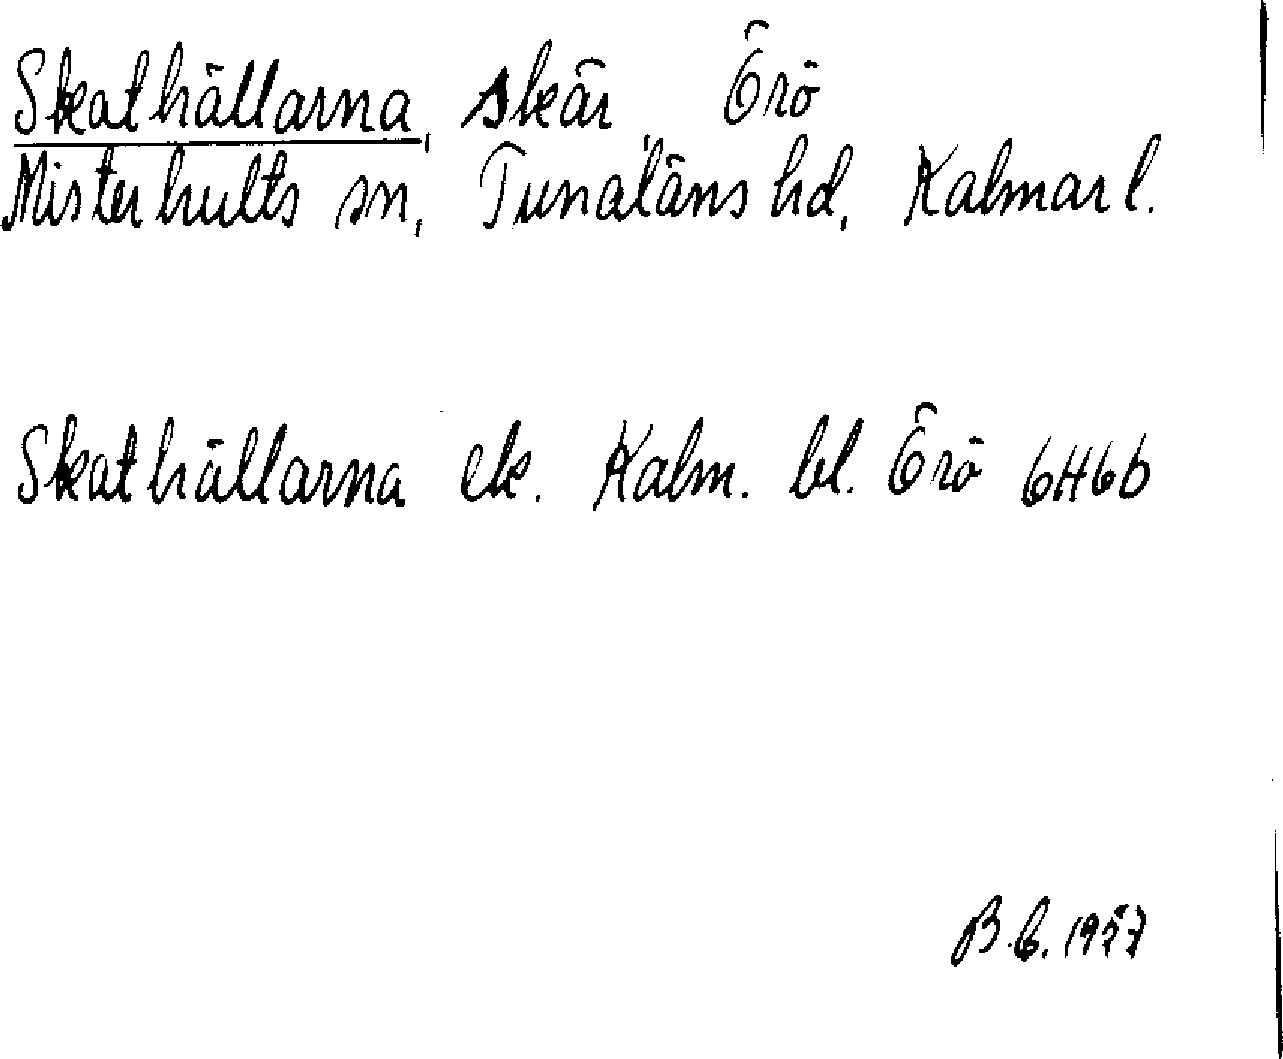 Skathällarna, skär, Örö
Misterhults sn, Tunaläns hd, Kalmar l.
Skathällarna ek. Kalm. bl. Örö 6H6b